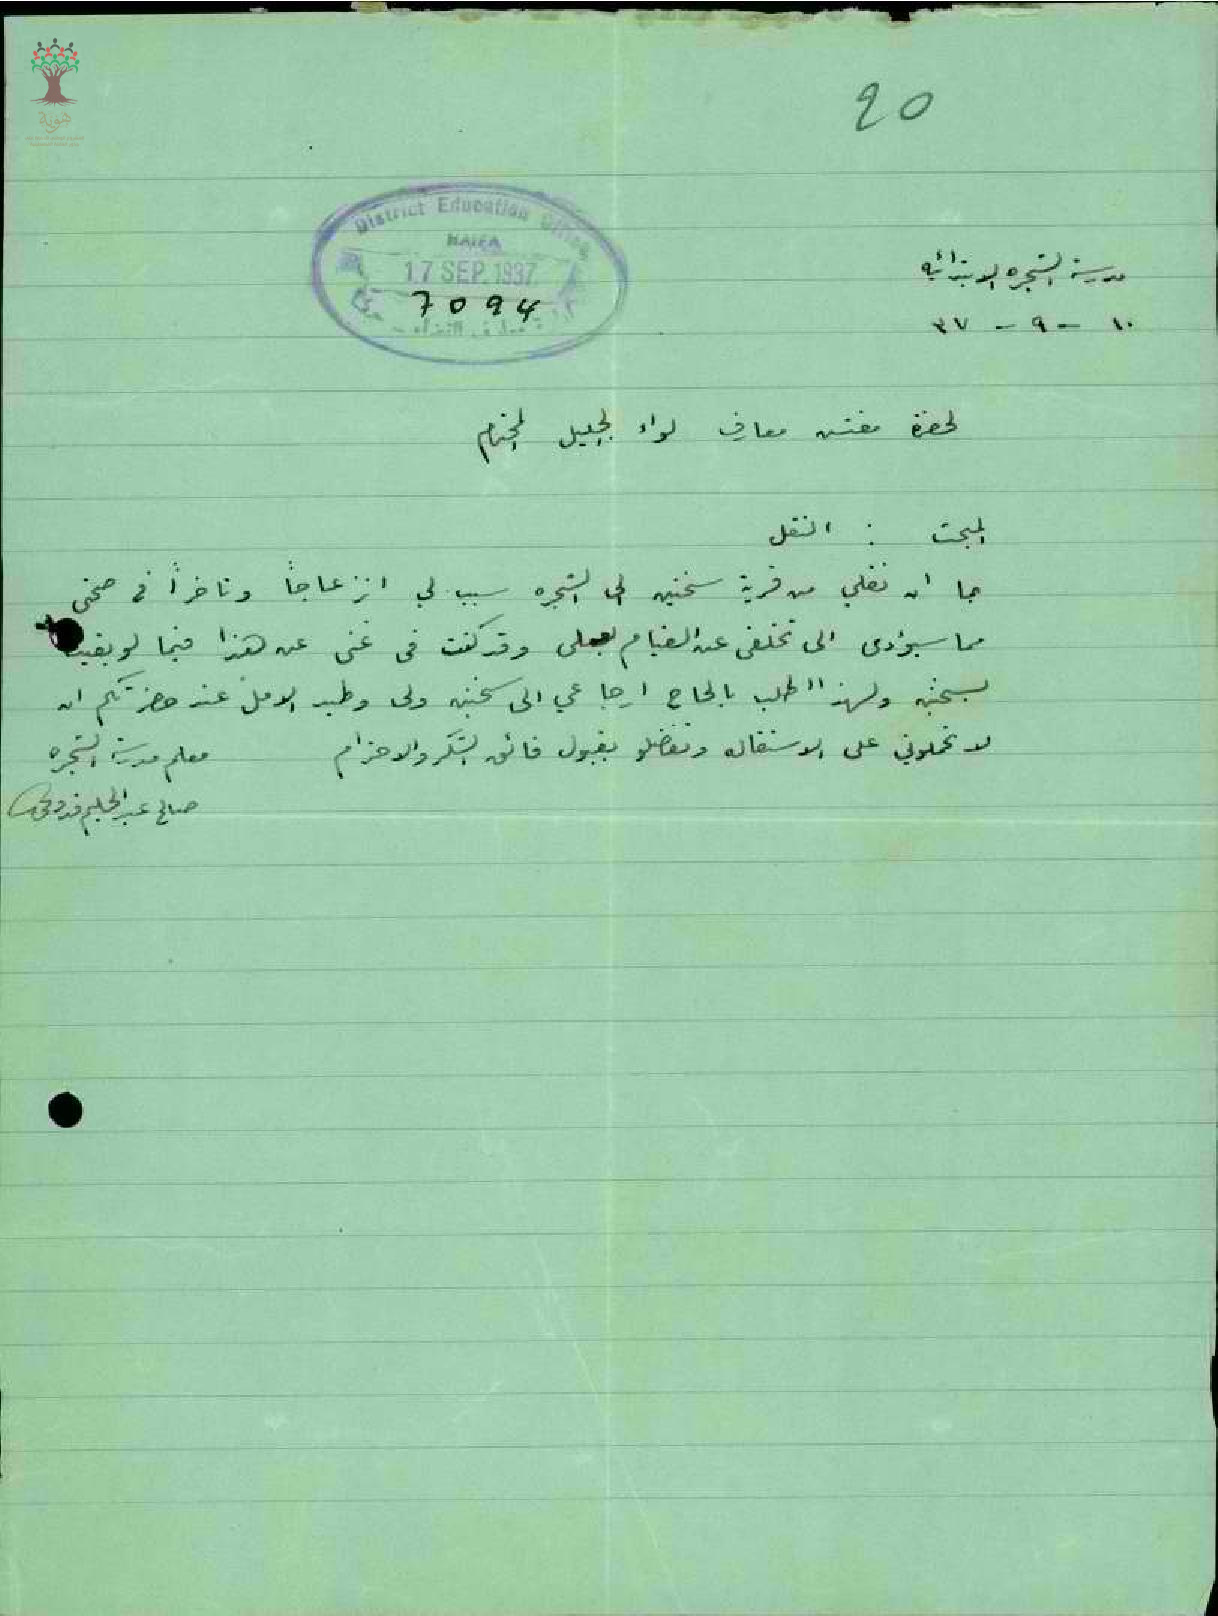 هوية
20
District Education Office
HAIFA
17 SEP. 1937
7094
مدرسة الشجره الابتدائيه
١٠ - ٩ - ٣٧
لحضرة مفتش معارف لواء الجليل المحترم
المبحث : النقل
بما ان نقلي من قرية سخنين الى الشجره سبب لي انزعاجاً وتاخراً في صحتي
مما سيؤدى الى تخلفي عن القيام بعملى وقد كنت في غنى عن هذا فيما لو بقيت
بسخنين ولهذا اطلب بالحاح ارجاعي الى سخنين ولى وطيد الامل عند حضرتكم ان
لا تحملوني على الاستقاله وتفضلو بقبول فائق الشكر والاحترام
معلم مدرسة الشجره
صالح عبد الحليم